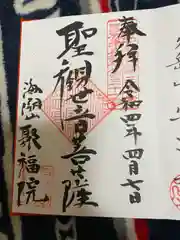 奉拝
令和四年四月七日
聖觀世音菩薩
海潮山
聚福院